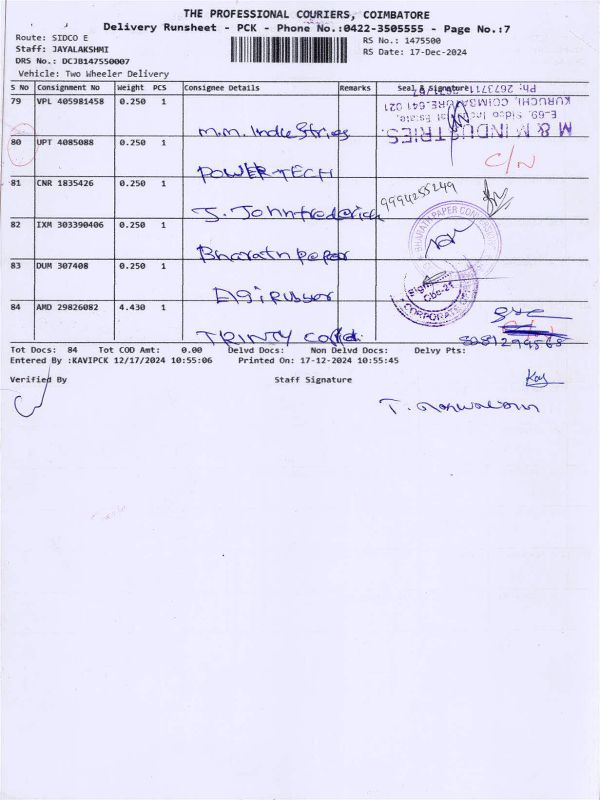 THE PROFESSIONAL COURIERS, COIMBATORE
Delivery Runsheet - PCK - Phone No.:0422-3505555 - Page No.:7
Route: SIDCO E
RS No.: 1475500
Staff: JAYALAKSHMI
RS Date: 17-Dec-2024
DRS No.: DCJB147550007
Vehicle: Two Wheeler Delivery
S No Consignment No Weight PCS Consignee Details Remarks Seal & Signature
79 VPL 405981458 0.250 1
M.M. Industries
M & M INDUSTRIES.
E-69, Sidco Indl Estate,
KURUCHI, COIMBATORE-641 021
80 UPT 4085088 0.250 1
POWER TECH
C/N
81 CNR 1835426 0.250 1
J. Johnfrederick
9994255249
82 IXM 303390406 0.250 1
Bharath paper
BHARATH PAPER
83 DUM 307408 0.250 1
84 AMD 29826082 4.430 1
TRINTY
Tot Docs: 84 Tot COD Amt: 0.00 Delvd Docs: Non Delvd Docs: Delvy Pts:
Entered By :KAVIPCK 12/17/2024 10:55:06 Printed On: 17-12-2024 10:55:45
Verified By Staff Signature